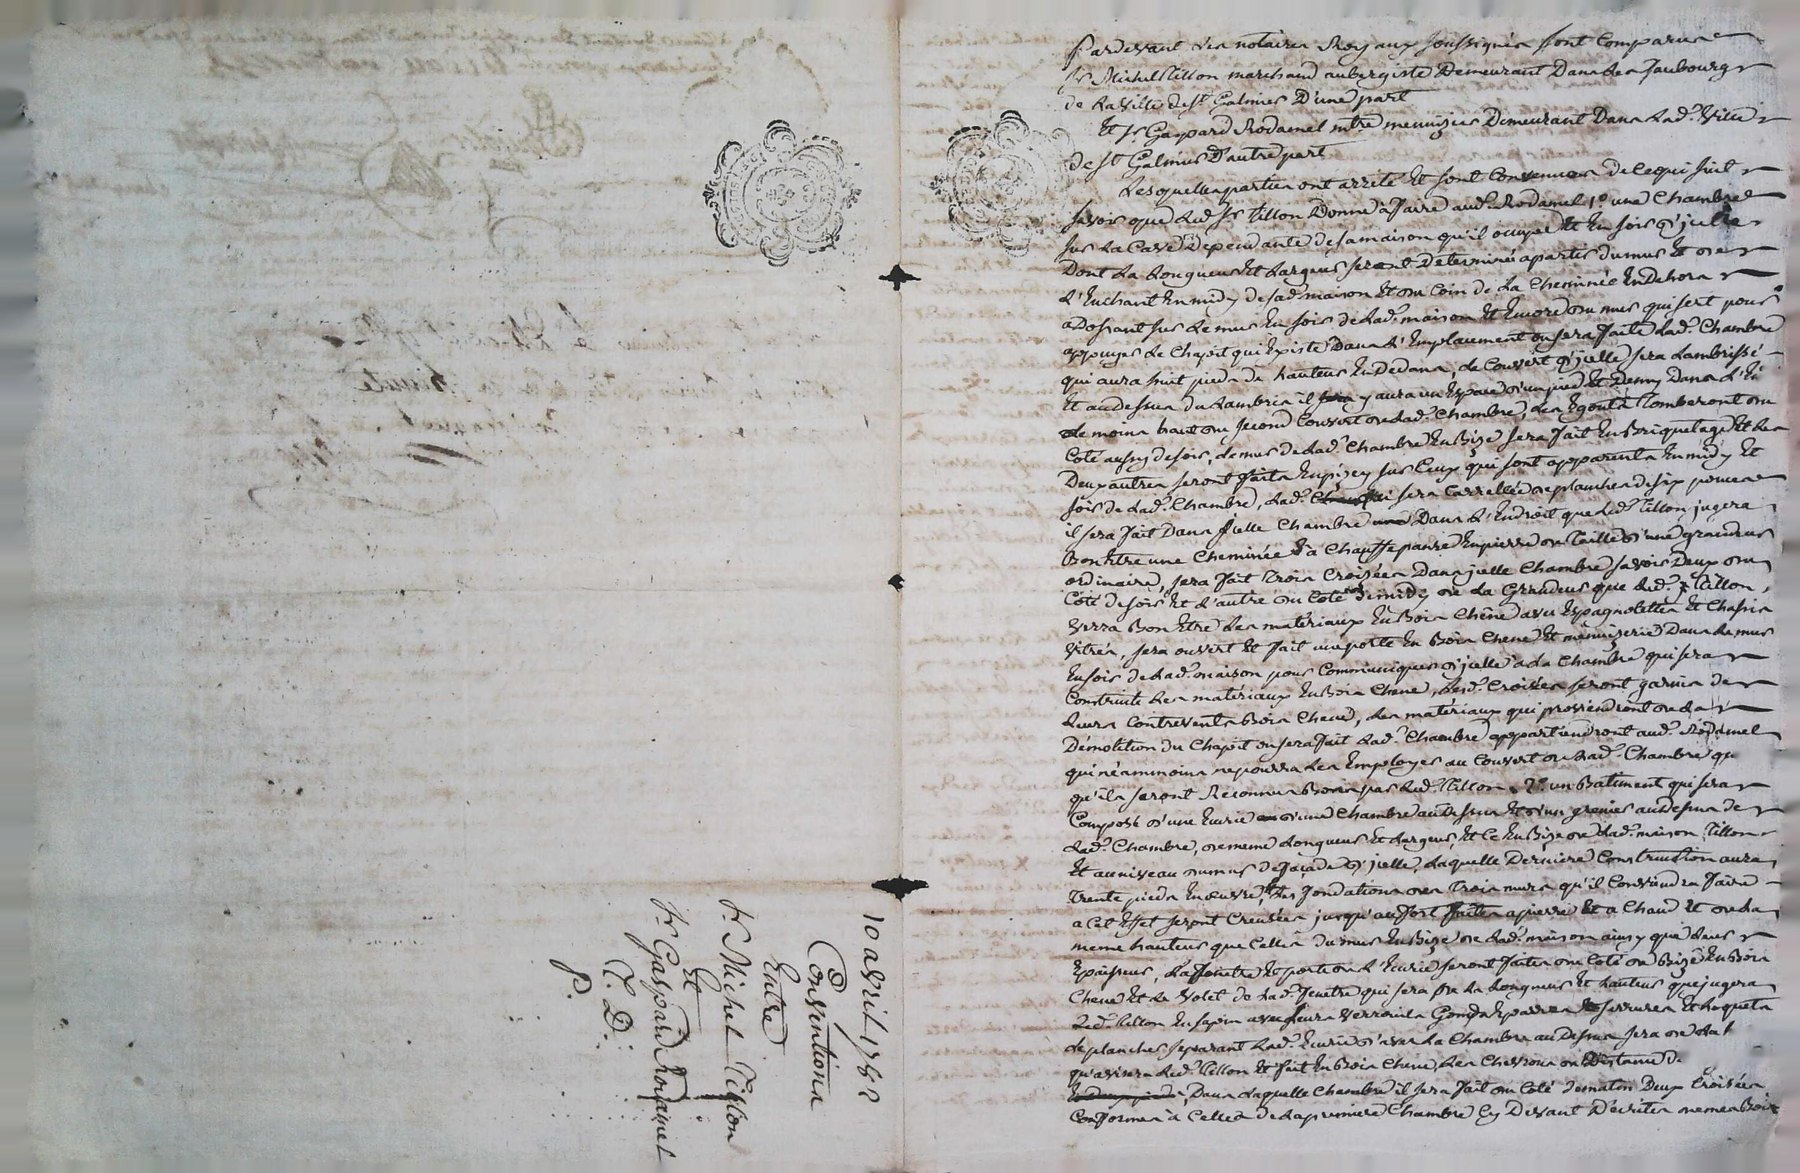 Pardevant les notaires Royaux soussignés sont Comparus
Sr. Michel Tillon marchand aubergiste Demeurant Dans les faubourgs
de la Ville de St. Galmier D'une part
Et Sr. Gaspard Rodamel mtre. menuizier Demeurant Dans lad. Ville
de St. Galmier D'autre part
Lesquelles parties ont arrêté Et sont Convenues de ce qui suit
savoir que led. Sr. Tillon Donne à faire aud. Rodamel 1o. une Chambre
sur la Cave Dependante de sa maison qu'il occupe Et En soir d'jcelle
Dont la Longueur Et Largeur seront Determinées a partir du mur Et de
L'Enchant En midy de sad. maison Et au Coin de la Cheminée En Dehors
adossant sur le mur En soir de lad. maison Et Encore au mur qui sert pour
appuyer le Chapit qui Existe Dans L'Emplacement ou sera faite lad. Chambre
qui aura huit pieds de hauteur En Dedans, le Couvert d'jcelle sera Lambrissé
Et audessus du Lambris il y aura un Espace d'un pied Et Demy Dans L'E
le moins haut au second Couvert de lad. Chambre, les Egouts Tomberont au
Coté aussy de soir, le mur de lad. Chambre En Bize sera fait En Briquetage Et les
Deux autres seront faits En pizey sur Ceux qui sont apparents En midy Et
soir de lad. Chambre, lad. sera Carrellée de planches de six pouces
il sera fait Dans jcelle Chambre Dans L'Endroit que led. Tillon jugera
Bon Etre une Cheminée à la Chauffepanse En pierre de Taille d'une grandeur
ordinaire, sera fait Trois Croisées Dans jcelle Chambre savoir Deux au
Coté de soir Et L'autre au Coté de midy de la Grandeur que led. Sr. Tillon
Verra Bon Etre les matériaux En Bois Chêne avec Espagnolettes Et Chassis
Vitrés, sera ouvert Et fait une porte En Bois Chene Et menuizerie Dans le mur
En soir de lad. maison pour Communiquer d'jcelle à la Chambre qui sera
Construite les matériaux En Bois Chene, lesd. Croisées seront garnies de
Leurs Contrevents Bois Chene, les matériaux qui proviendront de la
Démolition du Chapit ou sera fait lad. Chambre appartiendront aud. Rodamel
qui néammoins ne pourra les Employer au Couvert de lad. Chambre qu
qu'ils seront Reconnus Bons par led. Tillon. 2o. un Batiment qui sera
Composé d'une Ecurie d'une Chambre audessus Et d'un grenier audessus de
lad. Chambre, de meme Longueur Et Largeur, Et ce En Bize de lad. maison Tillon
Et au niveau du mur de façade d'jcelle, Laquelle Derniere Construction aura
Trente pieds En oeuvre, les fondations des Trois murs qu'il Conviendra faire
a Cet Effet seront Creusées jusqu'au fort faites a pierre Et a Chaud Et de la
meme hauteur que Celles du mur En Bize de lad. maison ainsy que leur
Epaisseur, la fenetre Et porte de L'Ecurie seront faites au Coté de Bize En Bois
Chene Et le Volet de lad. fenetre qui sera de la Longueur Et hauteur que jugera
led. Tillon En sapin avec leurs Verrouils Gonds Eparres serrures Et Loquets
le plancher separant lad. Ecurie d'avec la Chambre au Dessus sera de
qu'avisera led. Tillon Et fait En Bois Chene, les Chevrons En Distance de
Dans Laquelle Chambre il sera fait au Coté de matin Deux Croisées
Conformes à Celles de la premiere Chambre Cy Devant Décrites memes Bois
10 avril 1782
Conventions
Entre
Sr. Michel Tillon
Et
Sr. Gaspard Rodamel
T. D.
P.